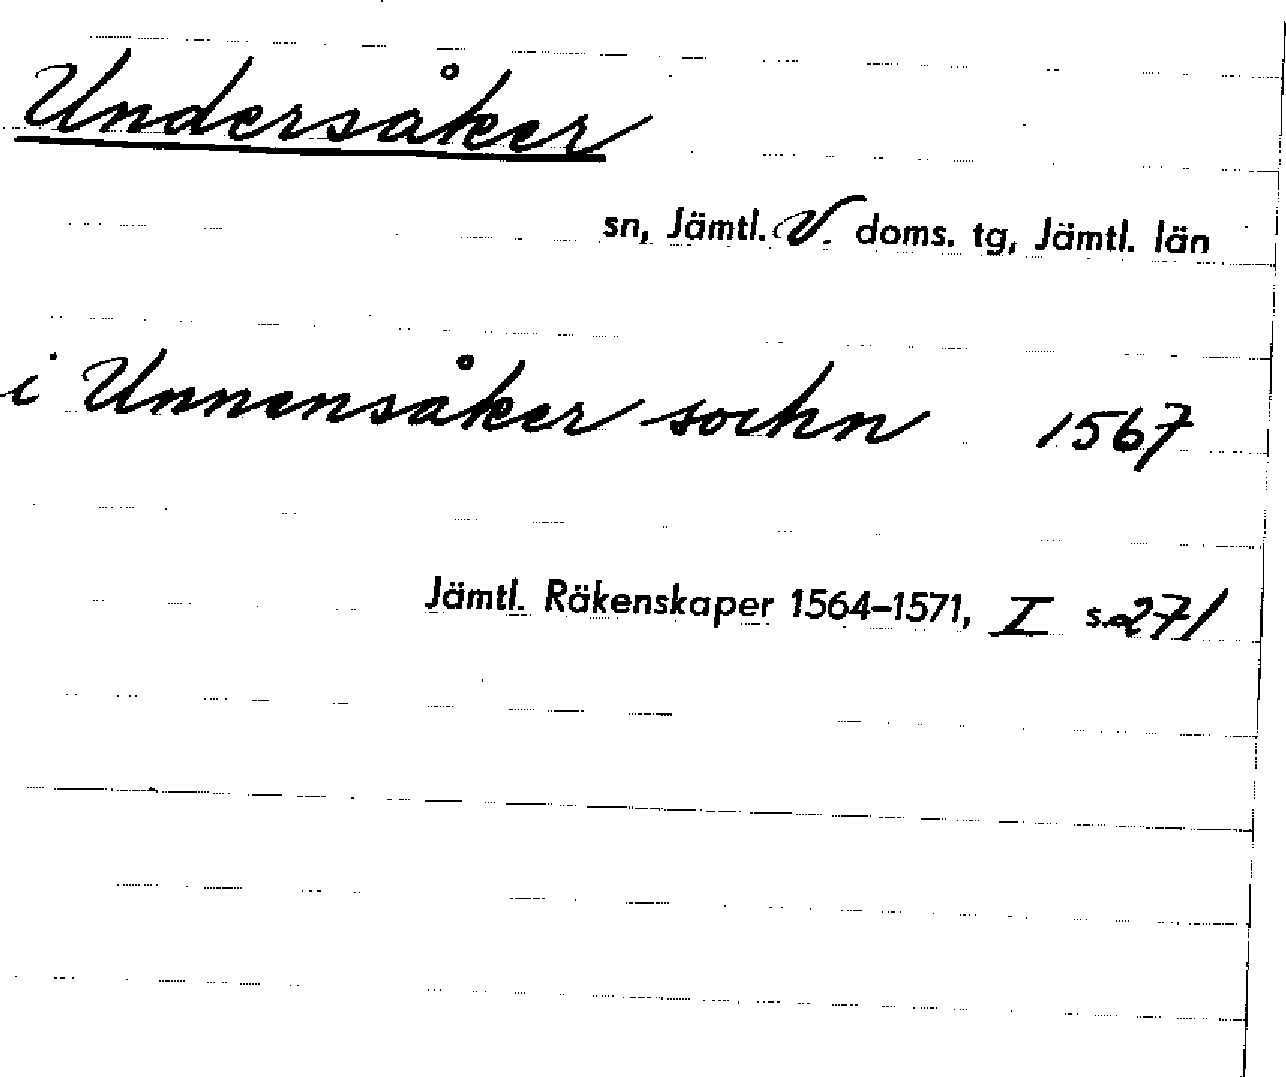 Undersåker
sn, Jämtl. V. doms. tg, Jämtl. län
i Unnensåker sochn 1567
Jämtl. Räkenskaper 1564–1571, I s. 271